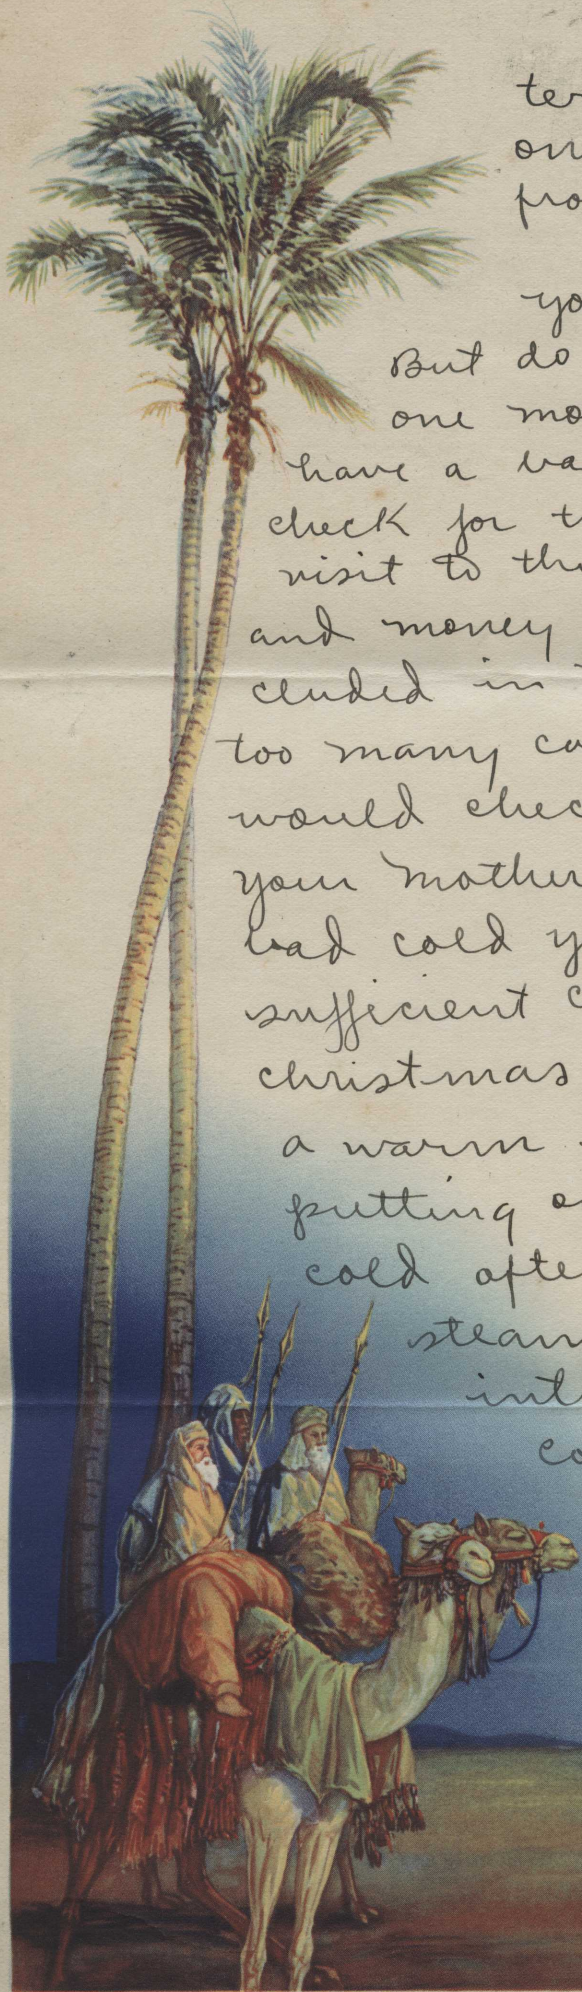 ter
on
fro
yo
But do
one mo
have a ba
check for t
visit to the
and money
cluded in
too many ca
would chec
your mother
bad cold y
sufficient c
christmas
a warm
putting o
cold afte
steam
int
co